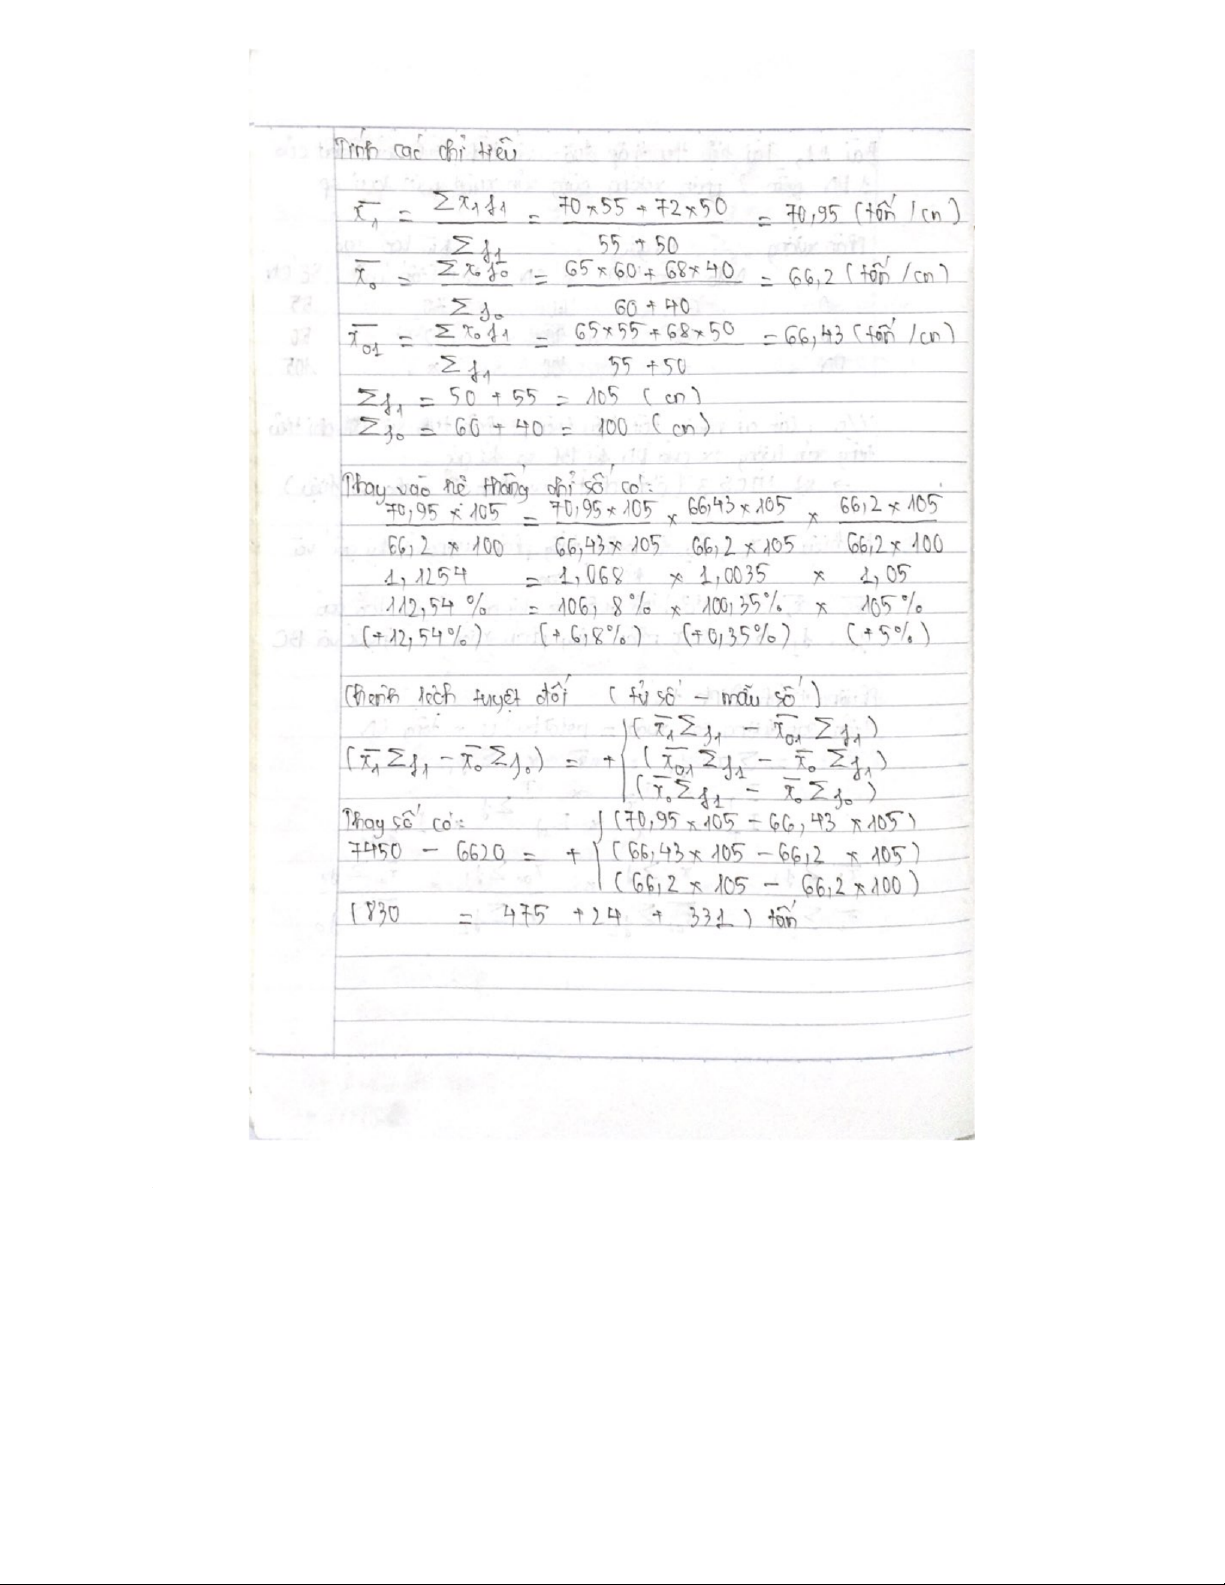 Tính các chỉ tiêu
x̄₁ = Σx₁f₁ / Σf₁ = (70×55 + 72×50) / (55 + 50) = 70,95 (tấn/cn)
x̄₀ = Σx₀f₀ / Σf₀ = (65×60 + 68×40) / (60 + 40) = 66,2 (tấn/cn)
x̄₀₁ = Σx₀f₁ / Σf₁ = (65×55 + 68×50) / (55 + 50) = 66,43 (tấn/cn)
Σf₁ = 50 + 55 = 105 (cn)
Σf₀ = 60 + 40 = 100 (cn)
Thay vào hệ thống chỉ số có:
(70,95 × 105) / (66,2 × 100) = (70,95 × 105) / (66,43 × 105) × (66,43 × 105) / (66,2 × 105) × (66,2 × 105) / (66,2 × 100)
1,1254 = 1,068 × 1,0035 × 1,05
112,54 % = 106,8% × 100,35% × 105%
(+12,54%) (+6,8%) (+0,35%) (+5%)
Chênh lệch tuyệt đối (tử số - mẫu số)
(x̄₁Σf₁ - x̄₀₁Σf₁)
(x̄₁Σf₁ - x̄₀Σf₀) = + { (x̄₀₁Σf₁ - x̄₀Σf₁)
(x̄₀Σf₁ - x̄₀Σf₀)
Thay số có: (70,95 × 105 - 66,43 × 105)
7450 - 6620 = + { (66,43 × 105 - 66,2 × 105)
(66,2 × 105 - 66,2 × 100)
(830 = 475 + 24 + 331) tấn